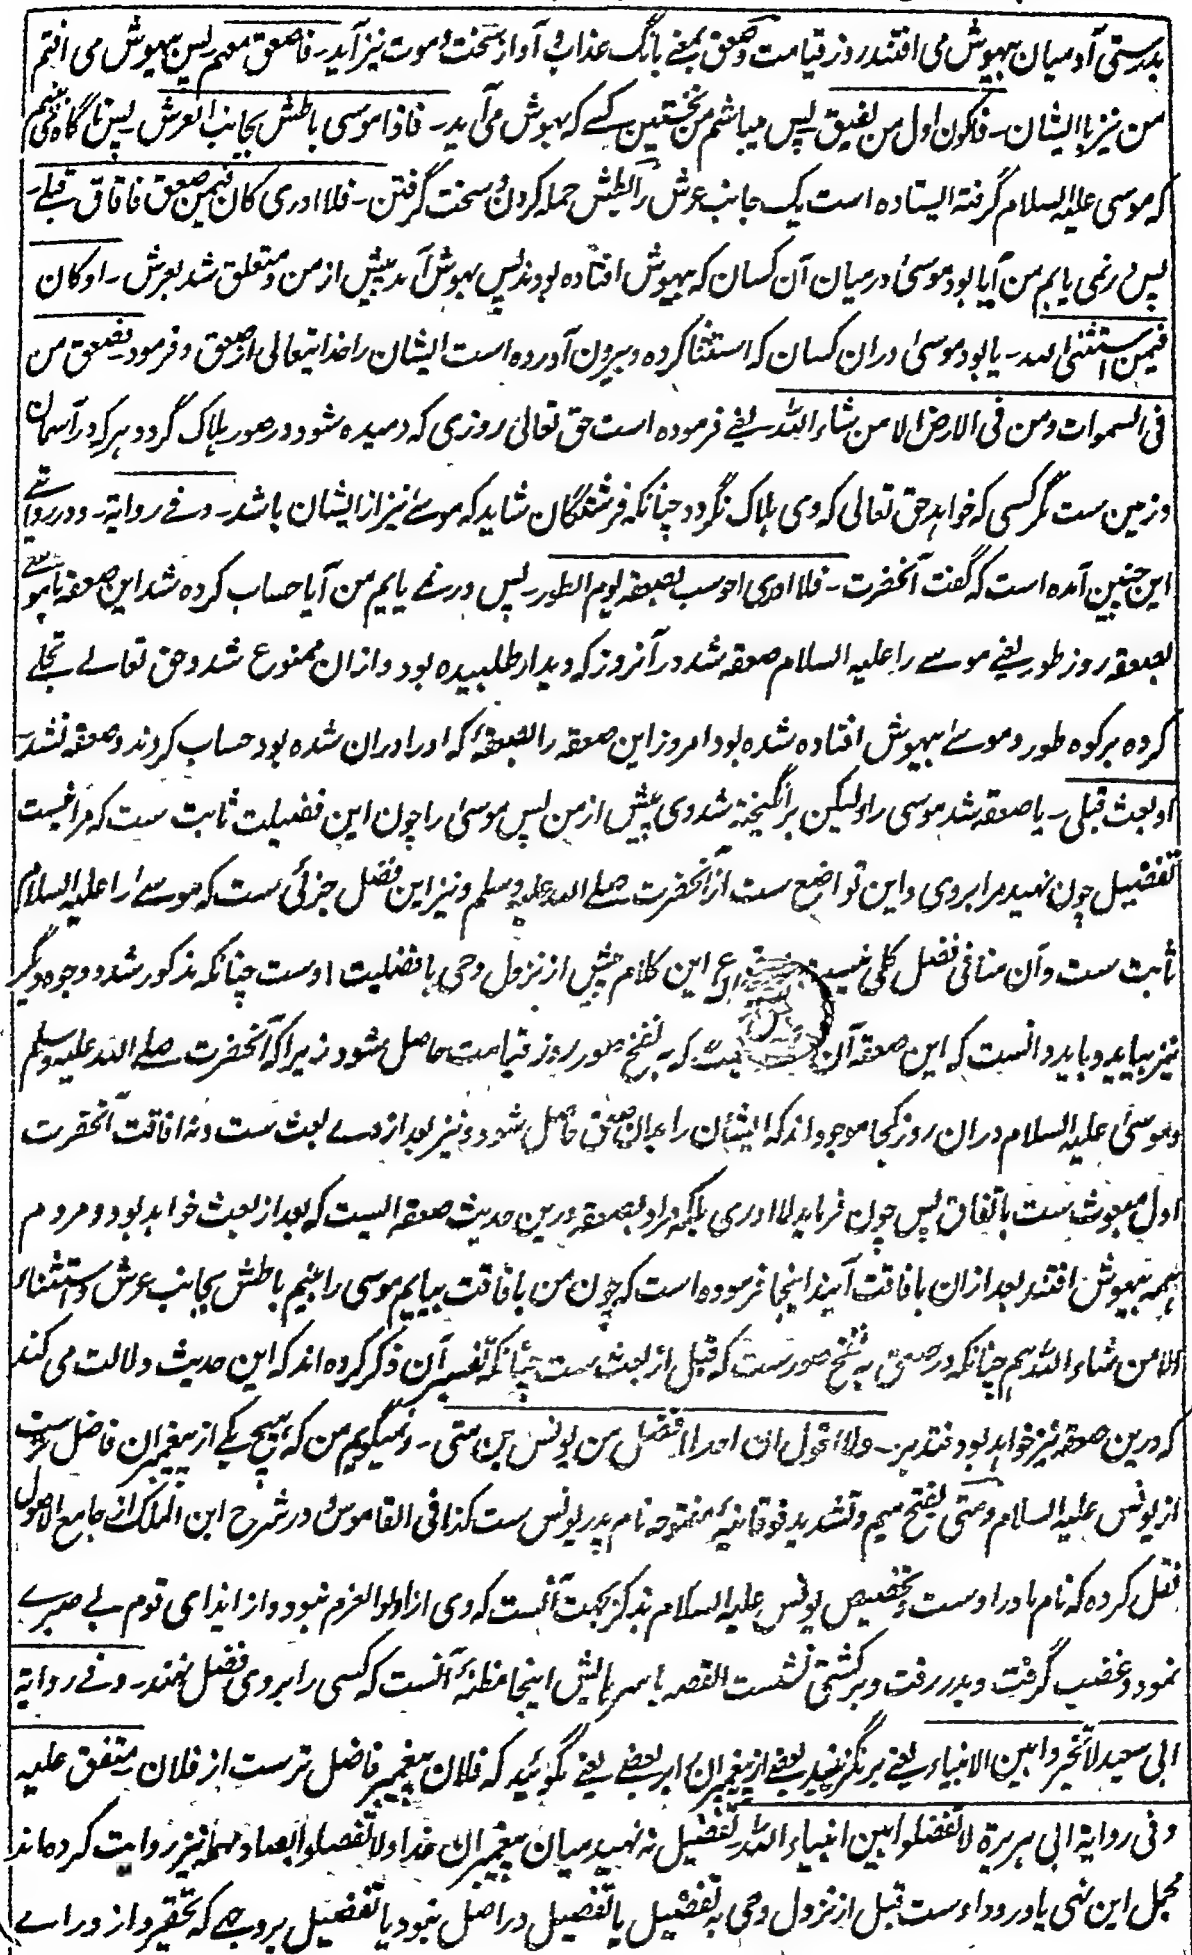 بدرستی آدمیان بیهوش می افتند روز قیامت وصعق بمعنے بانگ عذاب و آواز سخت و موت نیز آید ـ فاصعق معهم پس بیهوش می افتم
من نیز با ایشان ـ فاکون اول من یفیق پس میباشم من نخستین کسے که بهوش می آید ـ فاذا موسی باطش بجانب العرش پس ناگاه می بینم
که موسی علیه السلام گرفته ایستاده است یک جانب عرش را بطش حمله کردن و سخت گرفتن ـ فلا ادری کان فیمن صعق فافاق قبلے ـ
پس در نمی یابم من آیا بود موسیٰ درمیان آن کسان که بیهوش افتاده بودند پس بهوش آمد پیش از من و متعلق شد بعرش ـ او کان
فیمن استثنی الله ـ یا بود موسیٰ دران کسان که استثنا کرده و بیرون آورده است ایشان را خدایتعالی از صعق و فرمود فصعق من
فی السموات ومن فی الارض الا من شاء الله یعنے فرموده است حق تعالی روزی که دمیده شود در صور هلاک گردد هر که در آسمان
و زمین ست مگر کسی که خواهد حق تعالی که وی هلاک نگردد چنانکه فرشتگان شاید که موسےٰ نیز از ایشان باشد ـ وفے روایة ـ و در روایتے
این چنین آمده است که گفت آنحضرت ـ فلا ادری احوسب بصعقه یوم الطور ـ پس در نمے یابم من آیا حساب کرده شد این صعقه با موسے
بصعقه روز طور یعنے موسے را علیه السلام صعقه شد در آنروز که دیدار طلبیده بود و ازان ممنوع شد و حق تعالے تجلے
کرده بر کوه طور و موسےٰ بیهوش افتاده شده بود امروز این صعقه را بصعقهٔ که او را دران شده بود حساب کردند و صعقه نشد ـ
او بعث قبلی ـ یا صعقه شد موسی را ولیکن برانگیخته شد وی پیش از من پس موسیٰ را چون این فضیلت ثابت ست که مرا نیست
تفضیل چون نهید مرا بروی و این تواضع ست از آنحضرت صلے الله علیه وسلم و نیز این فضل جزئی ست که موسےٰ را علیه السلام
ثابت ست و آن منافی فضل کلی نیست این کلام پیش از نزول وحی با فضلیت اوست چنانکه مذکور شد و وجوه دیگر
نیز بیاید و باید دانست که این صعقه آن نیست که به نفخ صور روز قیامت حاصل شود زیرا که آنحضرت صلے الله علیه وسلم
و موسیٰ علیه السلام دران روز کجا موجود اند که ایشان را بدان صعق حاصل شود و نیز بعد از وے بعث ست و نه افاقت آنحضرت
اول مبعوث ست باتفاق پس چون فرماید لا ادری بلکه مراد بصعقه درین حدیث صعقه ایست که بعد از بعث خواهد بود و مردم
همه بیهوش افتند بعد ازان بافاقت آیند اینجا فرموده است که چون من بافاقت بیایم موسی را بینم باطش بجانب عرش و استثناء
الا من شاء الله هم چنانکه در صعق به نفخ صور ست که قبل از بعث ست چنانکه تفسیر آن ذکر کرده اند که این حدیث دلالت می کند
که درین صعقه نیز خواهد بود فتدبر ـ ولا اقول ان احدا افضل من یونس بن متی ـ و نمیگویم من که هیچ یکے از پیغمبران فاضل ترست
از یونس علیه السلام و متی بفتح میم و تشدید فوقانیه مفتوحه نام پدر یونس ست کذا فی القاموس و در شرح ابن الملک از جامع الاصول
نقل کرده که نام مادر اوست و تخصیص یونس علیه السلام بذکر بجهت آنست که وی از اولوا العزم نبود و از ایذای قوم بے صبرے
نمود و غضب گرفت و بدر رفت و بر کشتی نشست القصه بسر پایش اینجا مظنهٔ آنست که کسی را بروی فضل نهند ـ وفے روایة
ابی سعید لا تخیروا بین الانبیاء یعنے بر نگزینید بعضے از پیغمبران را بر بعضے یعنے نگوئید که فلان پیغمبر فاضل ترست از فلان ـ متفق علیه
وفی روایة ابی هریرة لا تفضلوا بین انبیاء الله تفضیل نه نهید میان پیغمبران خدا و لا تفصلوا بصاد مهمله نیز روایت کرده اند
محمل این نهی یا ورود اوست قبل از نزول وحی به تفضیل یا تفضیل در اصل نبود یا تفضیل بروجهے که تحقیر و ازدراے